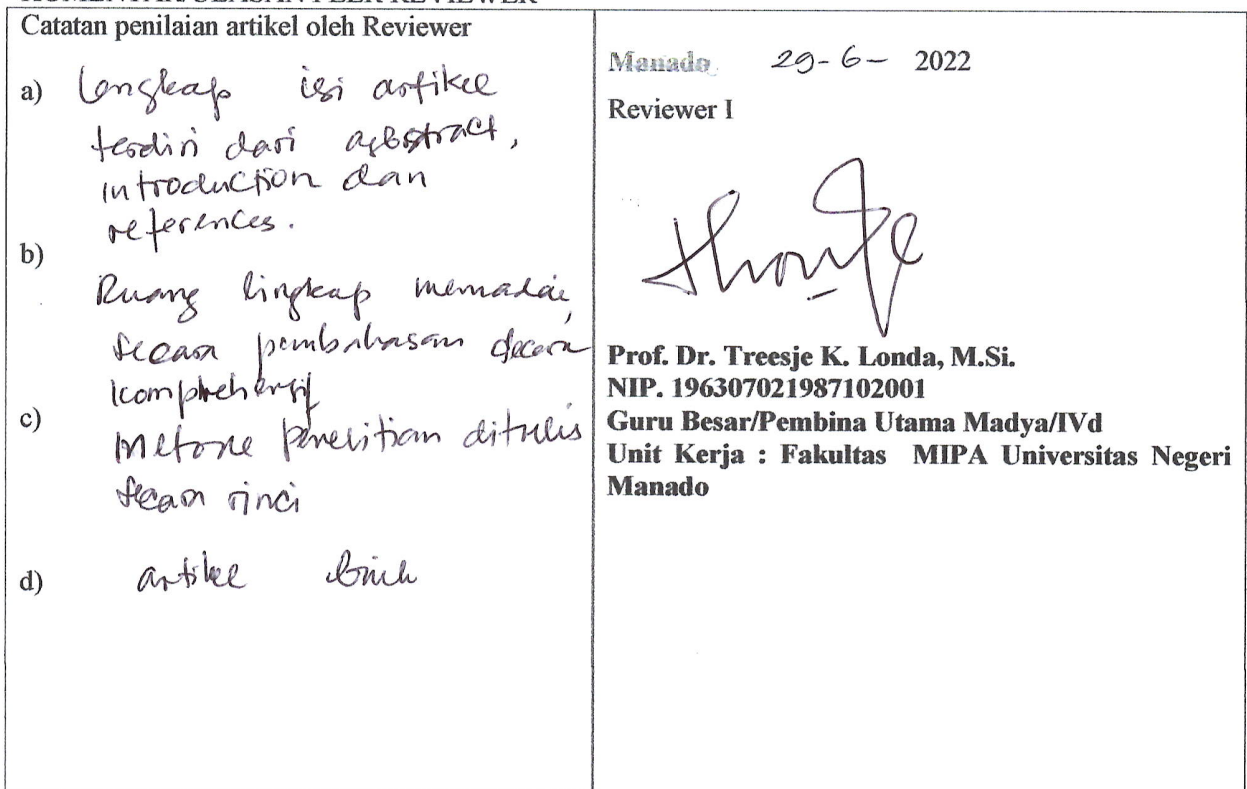 KOMENTAR/ULASAN PEER REVIEWER
Catatan penilaian artikel oleh Reviewer
a) Lengkap isi artikel
terdiri dari abstract,
introduction dan
references.
b)
Ruang lingkap memadai,
secara pembahasan secara
komprehensif
c)
Metode penelitian ditulis
secara rinci
d) artikel baik
Manado 29-6- 2022
Reviewer I
Prof. Dr. Treesje K. Londa, M.Si.
NIP. 196307021987102001
Guru Besar/Pembina Utama Madya/IVd
Unit Kerja : Fakultas MIPA Universitas Negeri
Manado